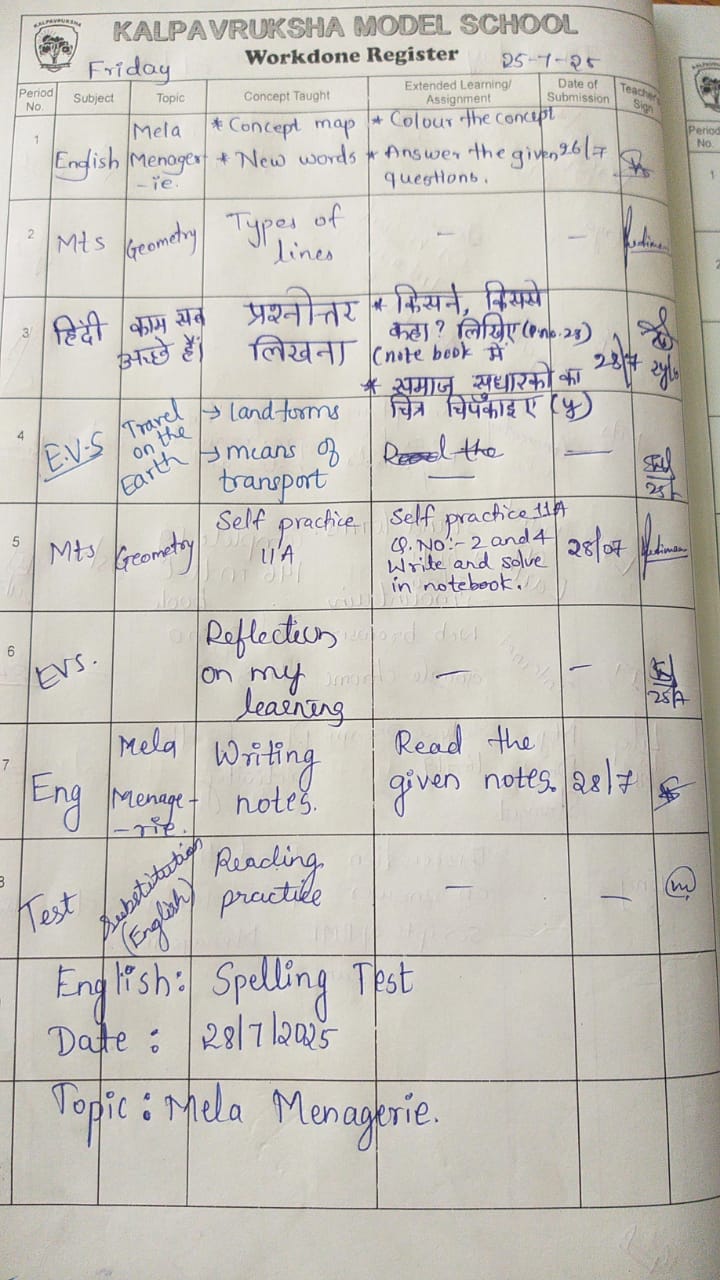 KALPAVRUKSHA
KALPAVRUKSHA MODEL SCHOOL
Workdone Register
Friday 25-7-25
Period No. Subject Topic Concept Taught Extended Learning/ Assignment Date of Submission Teacher's Sign
1 English Mela Menager-ie. * Concept map * Colour the concept
* New words * Answer the given questions. 26/7
2 Mts Geometry Types of lines - -
3 हिंदी काम सब अच्छे हैं। प्रश्नोत्तर लिखना * किसने, किससे
कहा? लिखिए (P.no.28)
(note book में 28/7
* समाज सुधारको का
चित्र चिपकाइए (y)
4 E.V.S Travel on the Earth → landforms
→ means of transport Read the —
5 Mts Geometry Self practice 11A Self practice 11A
Q.NO:- 2 and 4
Write and solve
in notebook. 28/07
6 EVS. Reflection on my learning — — 25/7
7 Eng Mela Menage-rie. Writing notes. Read the given notes. 28/7
8 Test Substitution (English) Reading practice — — m
English: Spelling Test
Date : 28/7/2025
Topic : Mela Menagerie.
Period No.
1
2